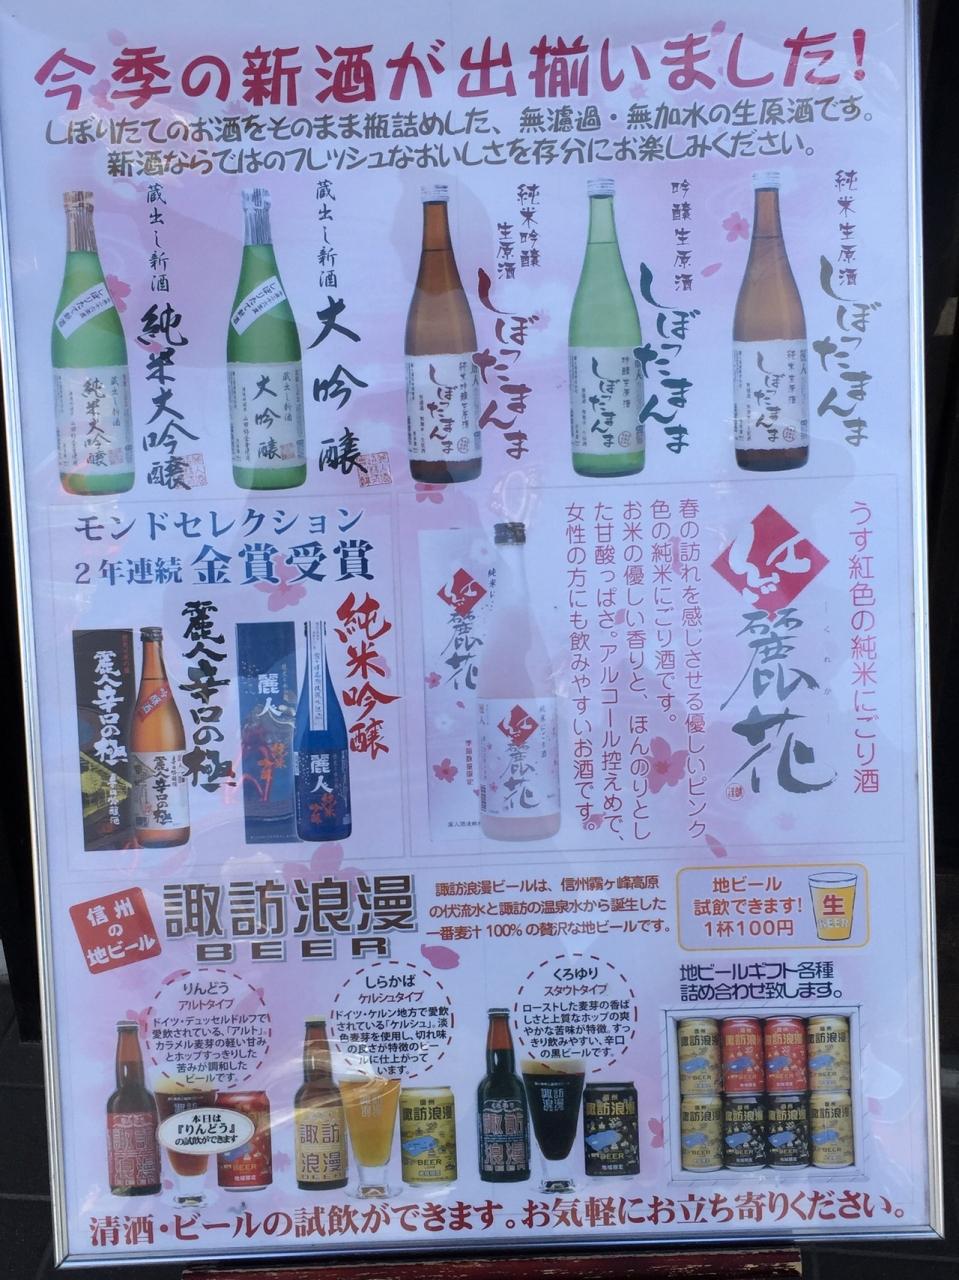 今季の新酒が出揃いました!
しぼりたてのお酒をそのまま瓶詰めした、無濾過・無加水の生原酒です。
新酒ならではのフレッシュなおいしさを存分にお楽しみください。
蔵出し新酒
純米大吟醸
しぼりたて新酒
蔵出し新酒
純米大吟醸
蔵出し新酒
大吟醸
しぼりたて新酒
蔵出し新酒
大吟醸
純米吟醸
生原酒
しぼったまんま
純米吟醸生原酒
しぼったまんま
吟醸生原酒
しぼったまんま
吟醸生原酒
しぼったまんま
純米生原酒
しぼったまんま
純米生原酒
しぼったまんま
モンドセレクション
2年連続 金賞受賞
麗人辛口の極
麗人辛口の極
吟醸酒
麗人辛口の極
純米吟醸
麗人
麗人
純米吟醸
うす紅色の純米にごり酒
紅麗花
くれか
春の訪れを感じさせる優しいピンク
色の純米にごり酒です。
お米の優しい香りと、ほんのりとし
た甘酸っぱさ。アルコール控えめで、
女性の方にも飲みやすいお酒です。
紅麗花
季節数量限定
紅麗花
信州
の
地ビール
諏訪浪漫
BEER
諏訪浪漫ビールは、信州霧ヶ峰高原
の伏流水と諏訪の温泉水から誕生した
一番麦汁100%の贅沢な地ビールです。
地ビール
試飲できます!
1杯100円
生
BEER
りんどう
アルトタイプ
ドイツ・デュッセルドルフで
愛飲されている、「アルト」。
カラメル麦芽の軽い甘み
とホップすっきりした
苦みが調和した
ビールです。
本日は
『りんどう』
の試飲ができます
しらかば
ケルシュタイプ
ドイツ・ケルン地方で愛飲
されている「ケルシュ」。淡
色麦芽を使用し、切れ味
の良さが特徴のビー
ルに仕上がって
います。
くろゆり
スタウトタイプ
ローストした麦芽の香ば
しさと上質なホップの爽
やかな苦味が特徴。すっ
きり飲みやすい、辛口
の黒ビールです。
地ビールギフト各種
詰め合わせ致します。
諏訪浪漫
BEER
諏訪浪漫
諏訪浪漫
BEER
諏訪浪漫
諏訪浪漫
BEER
清酒・ビールの試飲ができます。お気軽にお立ち寄りください。